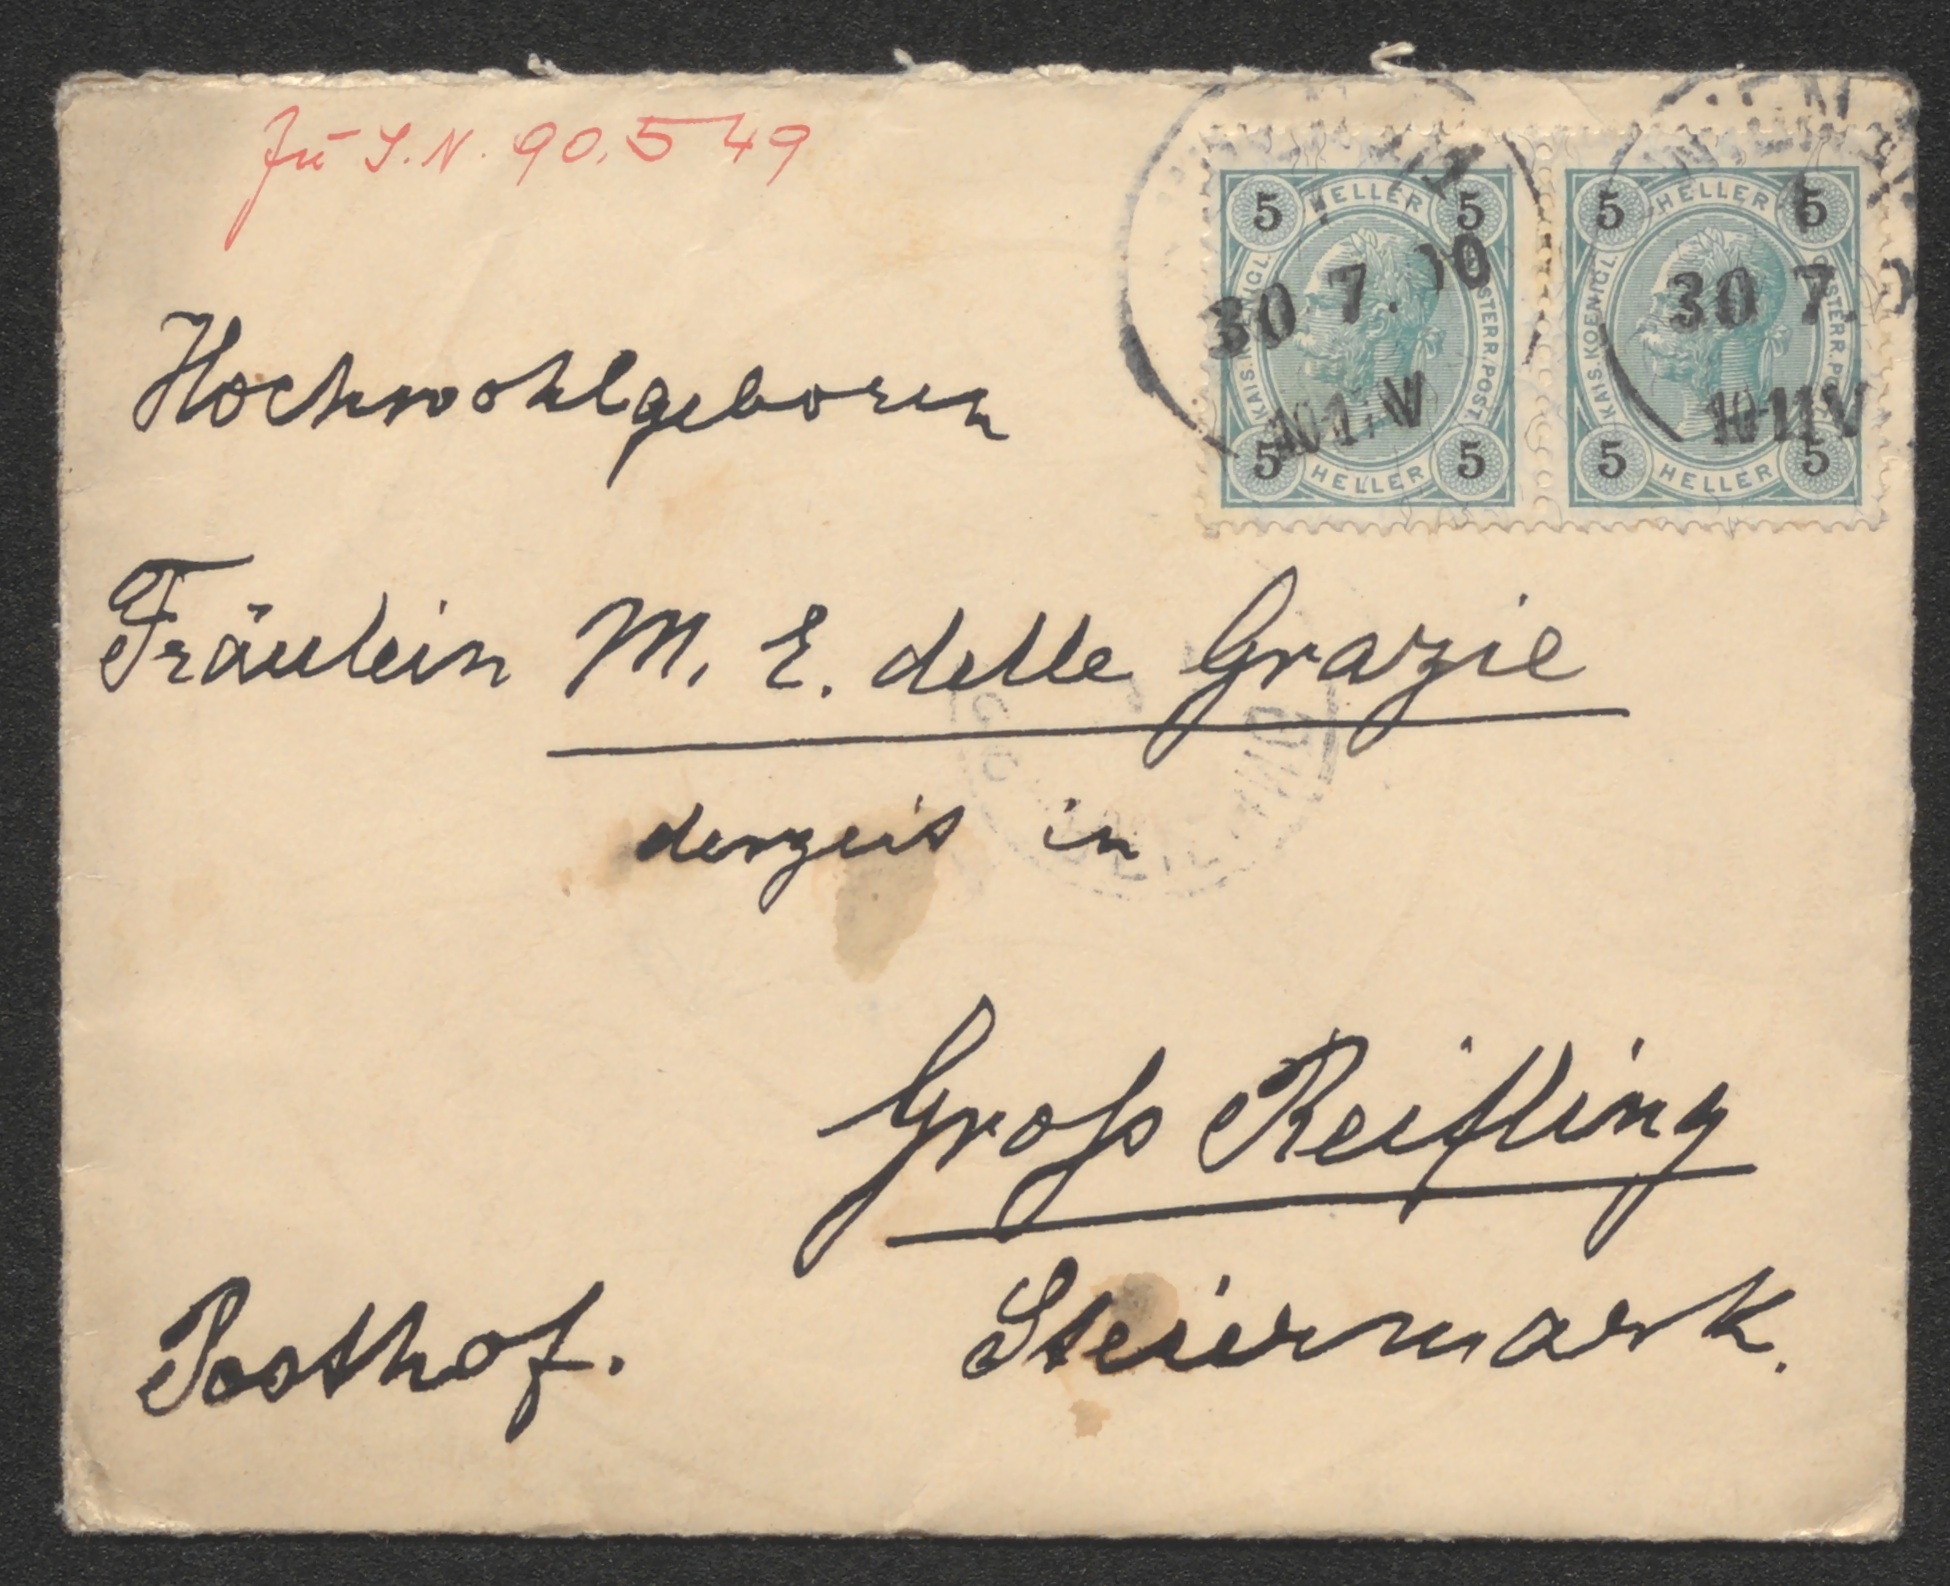 Zu I.N. 90.549
5 HELLER 5
5 HELLER 5
KAIS. KOENIGL. OESTERR. POST.
KAIS. KOENIGL. OESTERR. POST.
30 7. 00
30 7.
10-11 V
5 HELLER 5
5 HELLER 5
Hochwohlgeboren
Fräulein M. E. delle Grazie
derzeit in
Groß Reifling
Posthof. Steiermark.